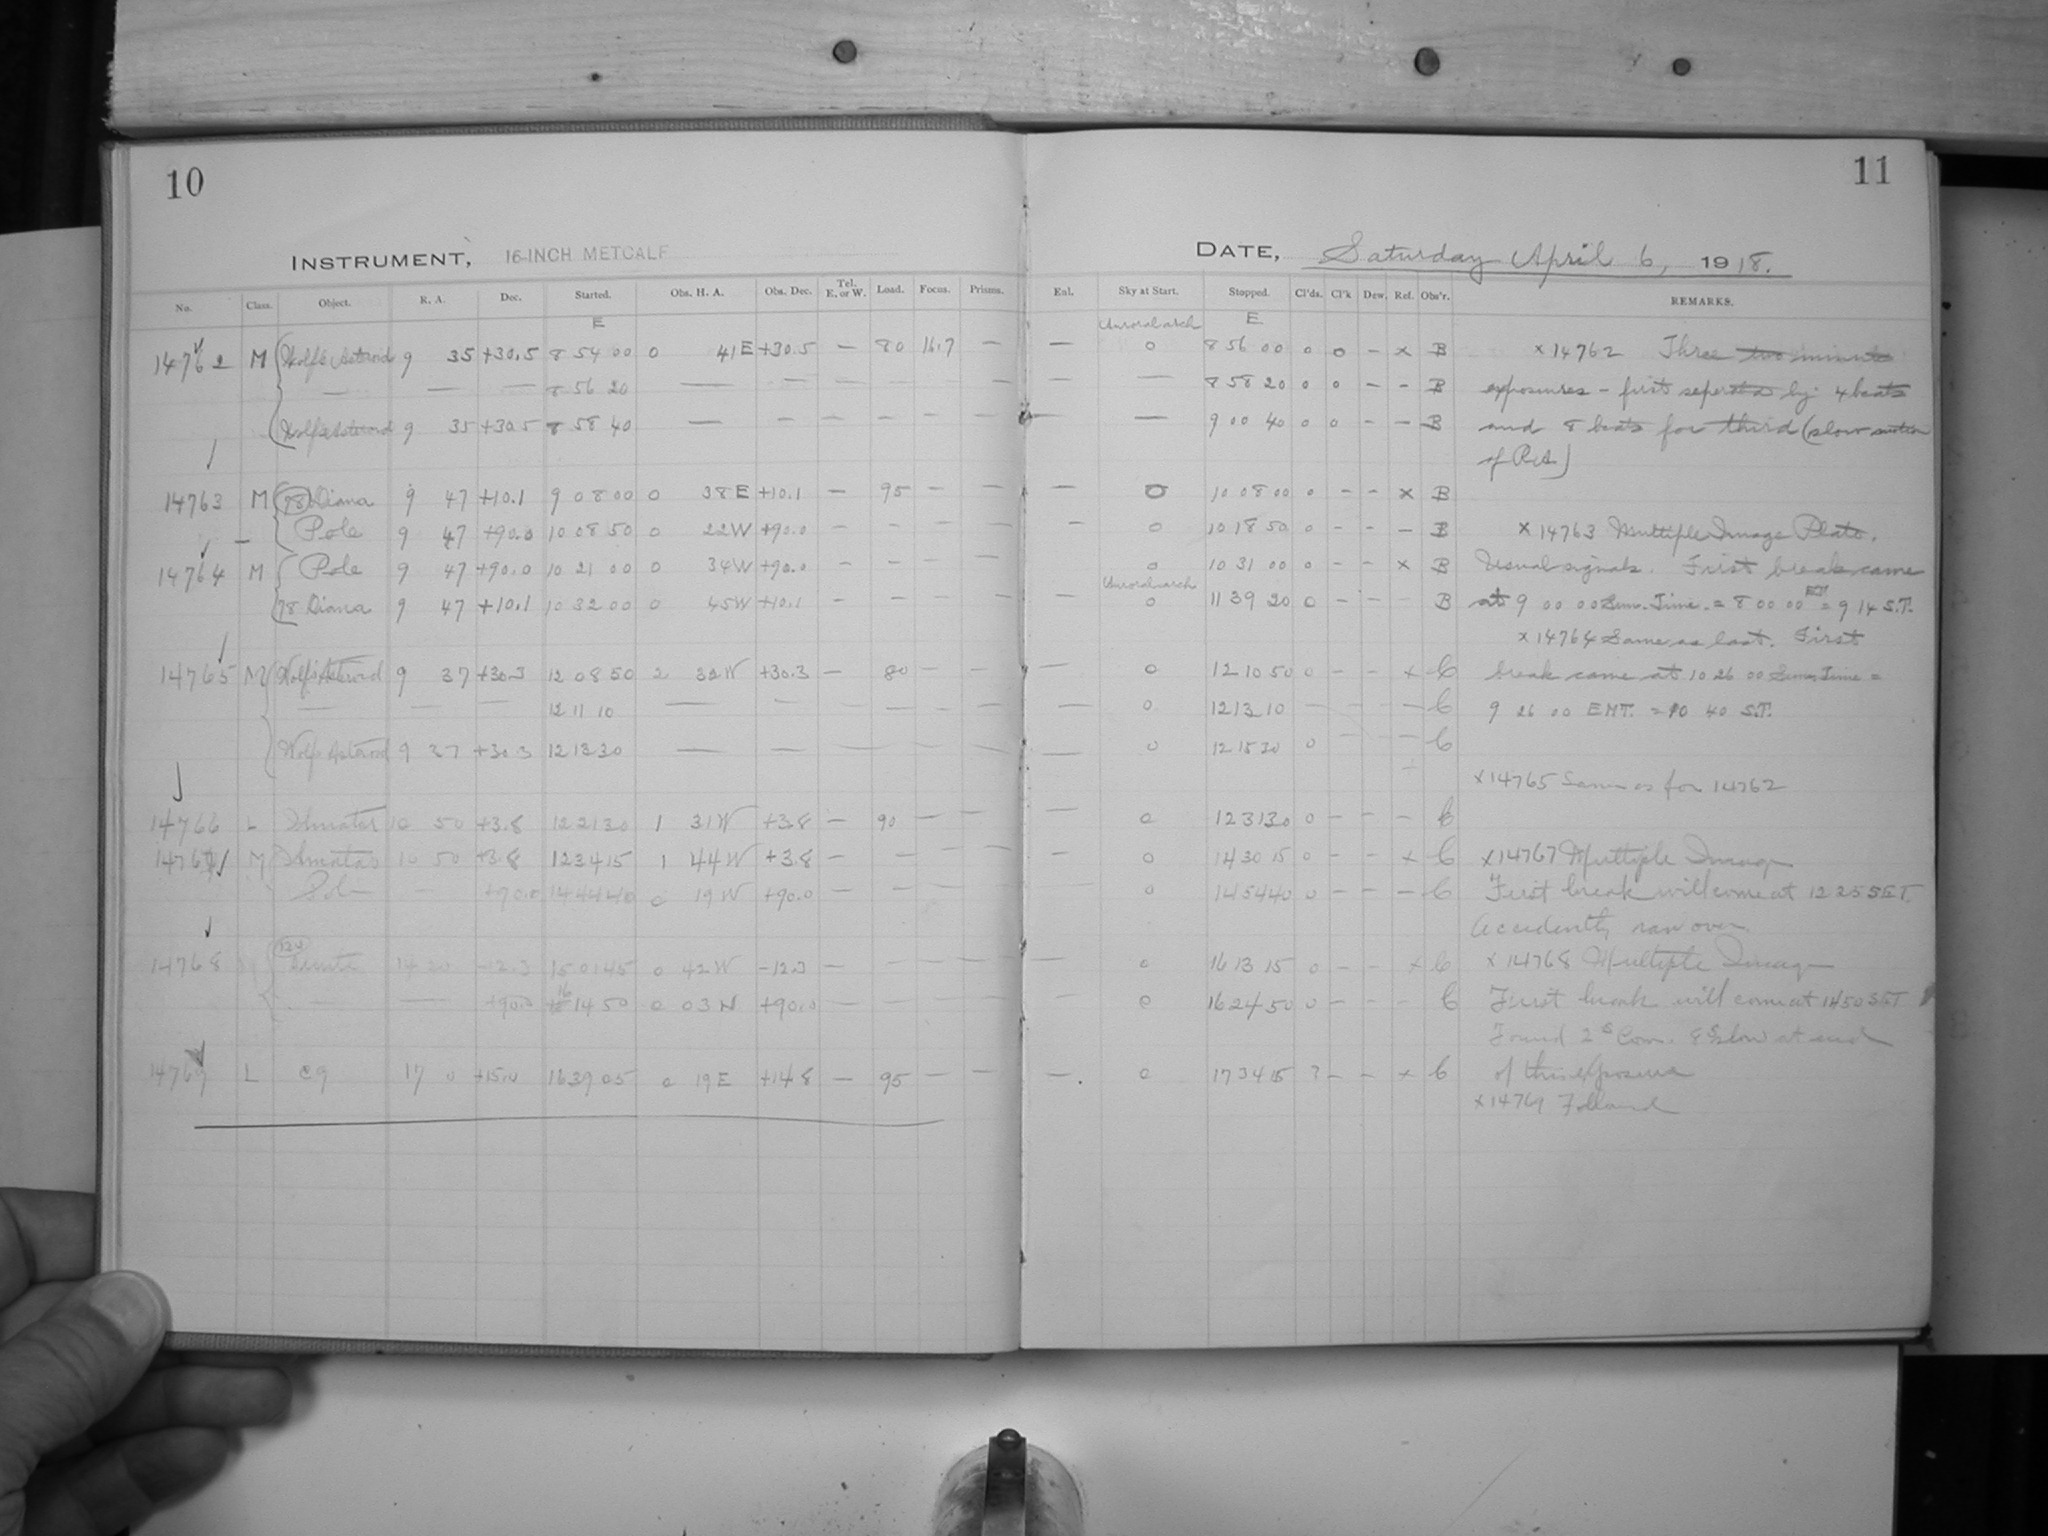 10
INSTRUMENT, 16-INCH METCALF
No. Class. Object. R. A. Dec. Started. Obs. H. A. Obs. Dec. Tel. E. or W. Load. Focus. Prisms.
E
14762 M Wolf's Asteroid 9 35 +30.5 8 54 00 0 41 E +30.5 — 80 16.7 —
— — — 8 56 20 — — — — — —
Wolf's Asteroid 9 35 +30.5 8 58 40 — — — — — —
14763 M (78) Diana 9 47 +10.1 9 08 00 0 38 E +10.1 — 95 — —
Pole 9 47 +90.0 10 08 50 0 22 W +90.0 — — — —
14764 M Pole 9 47 +90.0 10 21 00 0 34 W +90.0 — — — —
78 Diana 9 47 +10.1 10 32 00 0 45 W +10.1 — — — —
14765 M Wolf's Asteroid 9 37 +30.3 12 08 50 2 32 W +30.3 — 80 — —
— — — 12 11 10 — — — — — —
Wolf's Asteroid 9 37 +30.3 12 13 30 — — — — — —
14766 L 10 50 +3.8 12 21 30 1 31 W +3.8 — 90 — —
14767 M 10 50 +3.8 12 34 15 1 44 W +3.8 — — — —
— +90.0 14 44 40 0 19 W +90.0 — — — —
14768 14 20 15 01 45 0 42 W -12.3 — — — —
— — +90.0 16 14 50 0 03 +90.0 — — — —
14769 L C9 17 0 +15.0 16 39 05 0 19 E +14.8 — 95 — —
11
DATE, Saturday April 6, 1918.
Enl. Sky at Start. Stopped. Cl'ds. Cl'k Dew. Ref. Obs'r. REMARKS.
Auroral arch E
— 0 8 56 00 0 0 — x B x 14762 Three two minute
— — 8 58 20 0 0 — — B exposures – first seperated by 4 beats
— — 9 00 40 0 0 — — B and 8 beats for third (slow motion
of R.A)
— 0 10 08 00 0 — — x B
— 0 10 18 50 0 — — — B x 14763 Multiple Image Plate.
0 10 31 00 0 — — x B Visual signals. First break came
Auroral arch
0 11 39 20 0 — — B at 9 00 00 Sum. Time = 8 00 00 EST = 9 14 S.T.
x 14764 Same as last. First
— 0 12 10 50 0 — — x C break came at 10 26 00 Sum. Time =
— 0 12 13 10 — — — — C 9 26 00 EMT. = 10 40 S.T.
— 0 12 15 30 0 — — — C
x 14765 Same as for 14762
— 0 12 31 30 0 — — — C
— 0 14 30 15 0 — — x C x 14767 Multiple Image
— 0 14 54 40 0 — — — C First break will come at 12 25 S.E.T.
Accidently ran over.
0 16 13 15 0 — — x C x 14768 Multiple Image
0 16 24 50 0 — — — C First break will come at 14 50 S.E.T
Found 2 s Com. slow at end
—. 0 17 34 15 ? — — x C of this exposure
x 14769